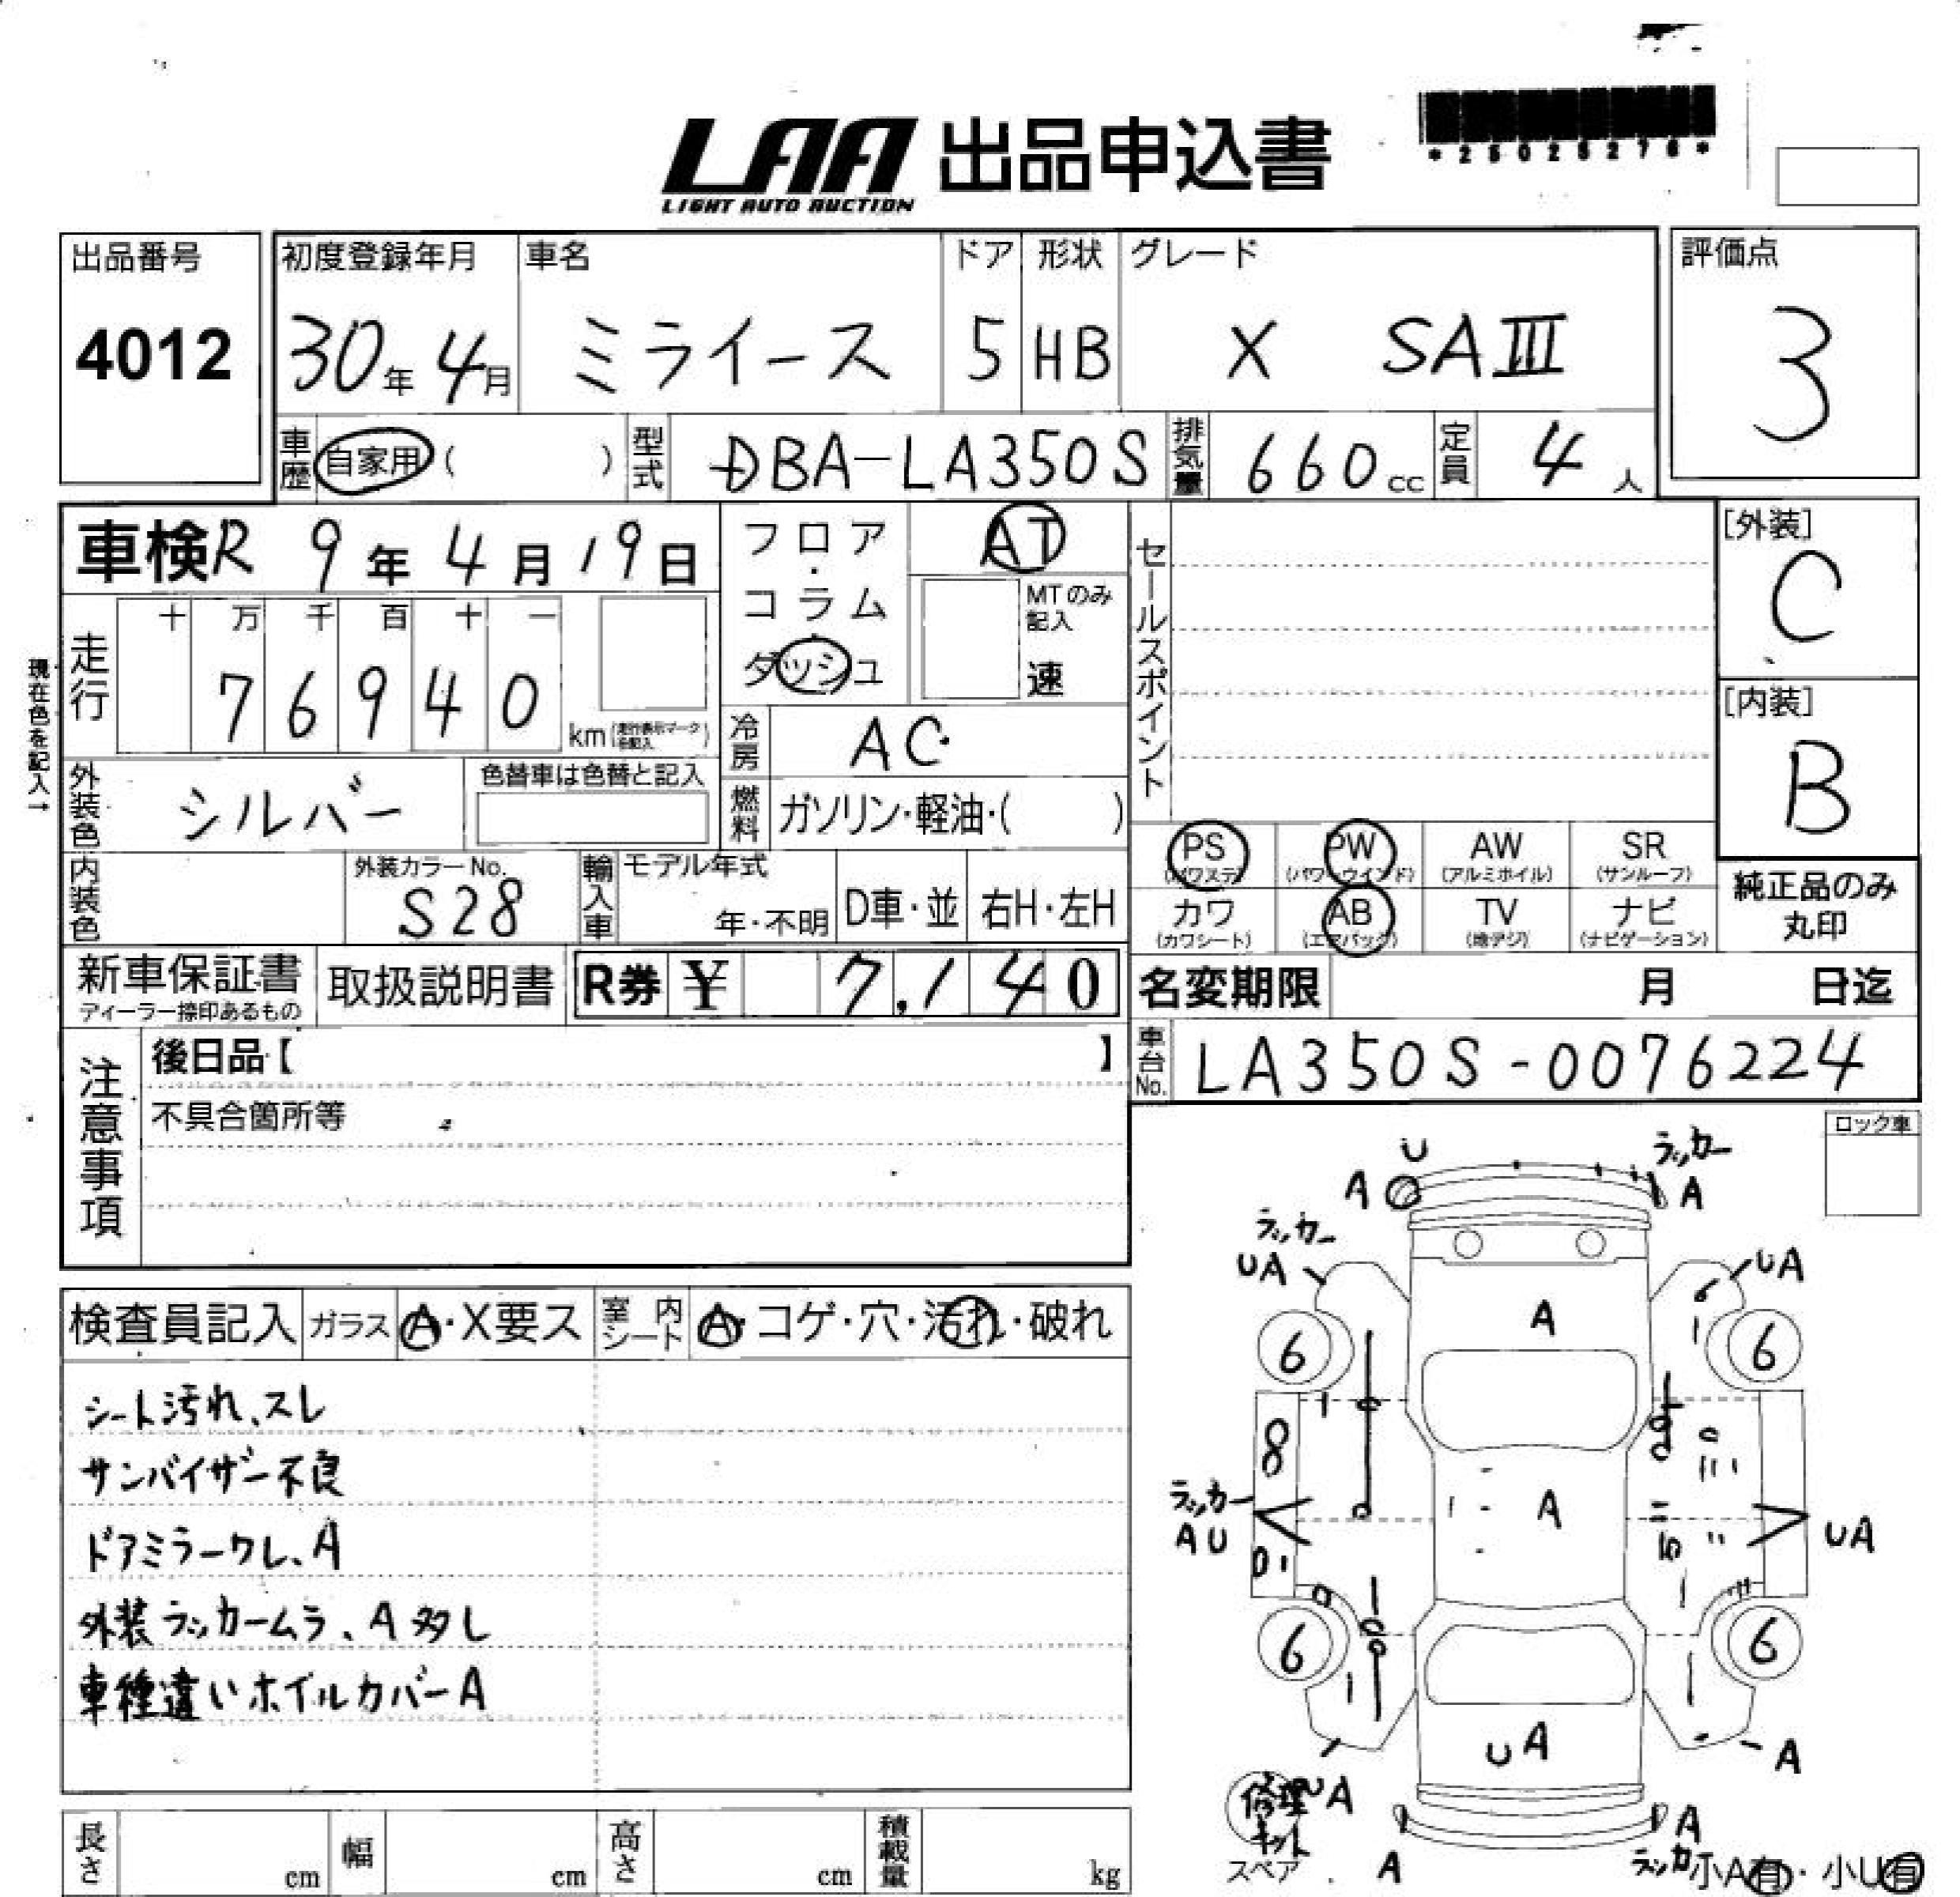 LAA 出品申込書
LIGHT AUTO AUCTION
*25025276*
出品番号
4012
初度登録年月 車名 ドア 形状 グレード
30年 4月 ミライース 5 HB X SAⅢ
評価点
3
車歴 自家用 ( ) 型式 DBA-LA350S 排気量 660cc 定員 4人
車検 R 9年 4月 19日
フロア・コラム・ダッシュ
AT
MTのみ記入
速
セールスポイント
[外装]
C
[内装]
B
現在色を記入→
走行 十 万 千 百 十 一
76940 km
冷房 AC
外装色 シルバー
色替車は色替と記入
燃料 ガソリン・軽油・( )
内装色
外装カラーNo.
S28
輸入車 モデル年式
年・不明 D車・並 右H・左H
PS (パワステ) PW (パワーウインド) AW (アルミホイル) SR (サンルーフ)
カワ (カワシート) AB (エアバッグ) TV (地デジ) ナビ (ナビゲーション)
純正品のみ
丸印
新車保証書
ディーラー捺印あるもの
取扱説明書
R券 ¥ 7,140
名変期限 月 日迄
車台No. LA350S-0076224
注意事項
後日品【 】
不具合箇所等
ロック車
検査員記入 ガラス A・X要ス 室内シート A・コゲ・穴・汚れ・破れ
シート汚れ、スレ
サンバイザー不良
ドアミラーワレ、A
外装ラッカームラ、A多し
車種違いホイルカバーA
U
ラッカー
A
A
ラッカー
UA
UA
A
6
6
8
A
ラッカー
AU
UA
6
6
UA
A
UA
修理キット
スペア
A
A
ラッカー
小A有・小U有
長さ cm 幅 cm 高さ cm 積載量 kg